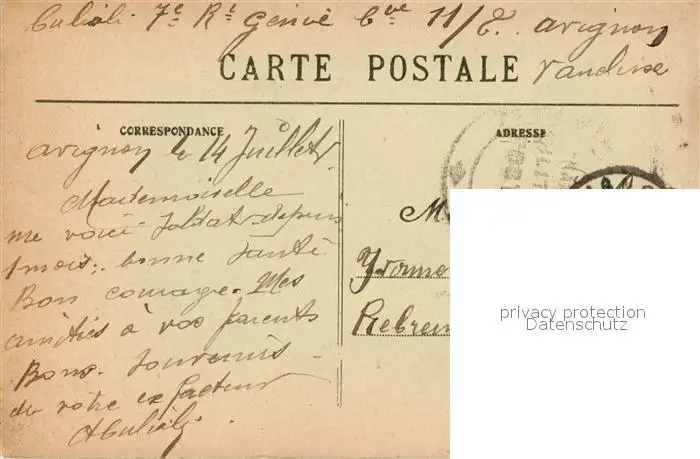 7e Rt Génie Cie 11/2. Avignon
CARTE POSTALE Vaucluse
CORRESPONDANCE
ADRESSE
Avignon le 14 Juillet
Mademoiselle
me voici soldat depuis
1 mois; bonne santé
Bon courage. Mes
amitiés à vos parents
Bons Souvenirs
de votre ex facteur
M
Yvonne
privacy protection
Datenschutz